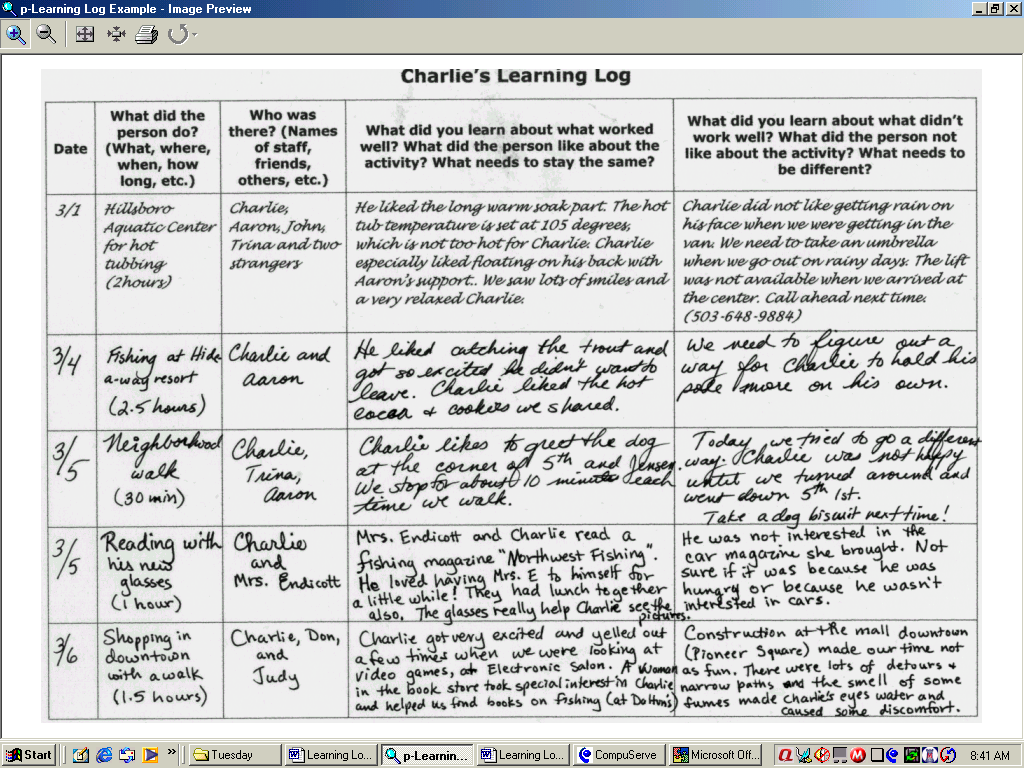 p-Learning Log Example - Image Preview
Charlie's Learning Log
Date
What did the
person do?
(What, where,
when, how
long, etc.)
Who was
there? (Names
of staff,
friends,
others, etc.)
What did you learn about what worked
well? What did the person like about the
activity? What needs to stay the same?
What did you learn about what didn't
work well? What did the person not
like about the activity? What needs to
be different?
3/1
Hillsboro
Aquatic Center
for hot
tubbing
(2hours)
Charlie,
Aaron, John,
Trina and two
strangers
He liked the long warm soak part. The hot
tub temperature is set at 105 degrees,
which is not too hot for Charlie. Charlie
especially liked floating on his back with
Aaron's support.. We saw lots of smiles and
a very relaxed Charlie.
Charlie did not like getting rain on
his face when we were getting in the
van. We need to take an umbrella
when we go out on rainy days. The lift
was not available when we arrived at
the center. Call ahead next time.
(503-648-9884)
3/4
Fishing at Hide
a-way resort
(2.5 hours)
Charlie and
Aaron
He liked catching the trout and
got so excited he didn't want to
leave. Charlie liked the hot
cocoa & cookies we shared.
We need to figure out a
way for Charlie to hold his
pole more on his own.
3/5
Neighborhood
walk
(30 min)
Charlie,
Trina,
Aaron
Charlie likes to greet the dog
at the corner of 5th and Jensen.
We stop for about 10 minutes each
time we walk.
Today we tried to go a different
way. Charlie was not happy
until we turned around and
went down 5th 1st.
Take a dog biscuit next time!
3/5
Reading with
his new
glasses
(1 hour)
Charlie
and
Mrs. Endicott
Mrs. Endicott and Charlie read a
fishing magazine "Northwest Fishing".
He loved having Mrs. E to himself for
a little while! They had lunch together
also. The glasses really help Charlie see the
pictures.
He was not interested in the
car magazine she brought. Not
sure if it was because he was
hungry or because he wasn't
interested in cars.
3/6
Shopping in
downtown
with a walk
(1.5 hours)
Charlie, Don,
and
Judy
Charlie got very excited and yelled out
a few times when we were looking at
video games, at Electronic Salon. A woman
in the book store took special interest in Charlie
and helped us find books on fishing (at Dotton's)
Construction at the mall downtown
(Pioneer Square) made our time not
as fun. There were lots of detours &
narrow paths and the smell of some
fumes made charlie's eyes water and
caused some discomfort.
Start
»
Tuesday
Learning Lo...
p-Learnin...
Learning Lo...
CompuServe
Microsoft Off...
8:41 AM